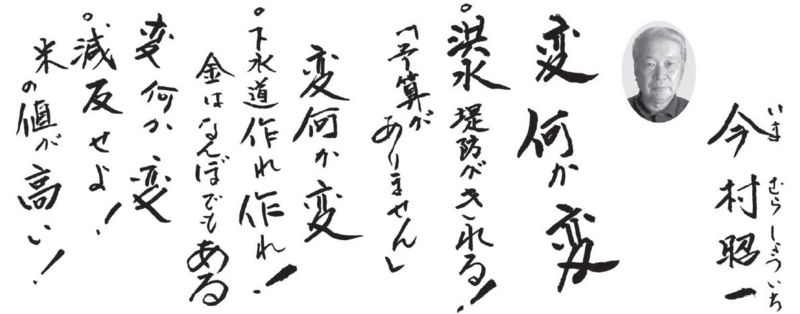 今村昭一
いまむらしょういち
変何か変
。洪水堤防がきれる!
「予算がありません」
変何か変
。下水道作れ作れ!
金はなんぼでもある
変何か変
。減反せよ!
米の値が高い!